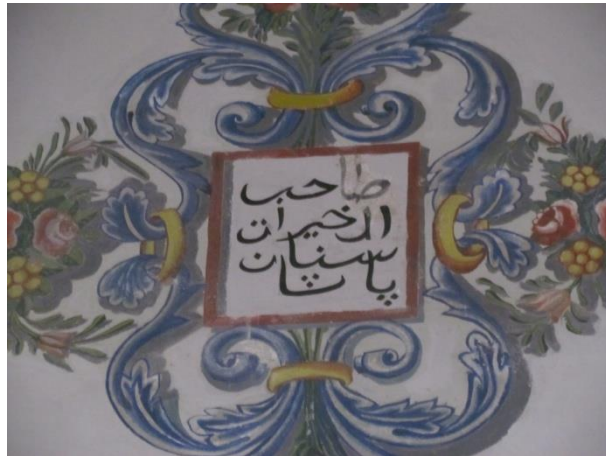 صاحب
الخيرات
سنان
پاشا